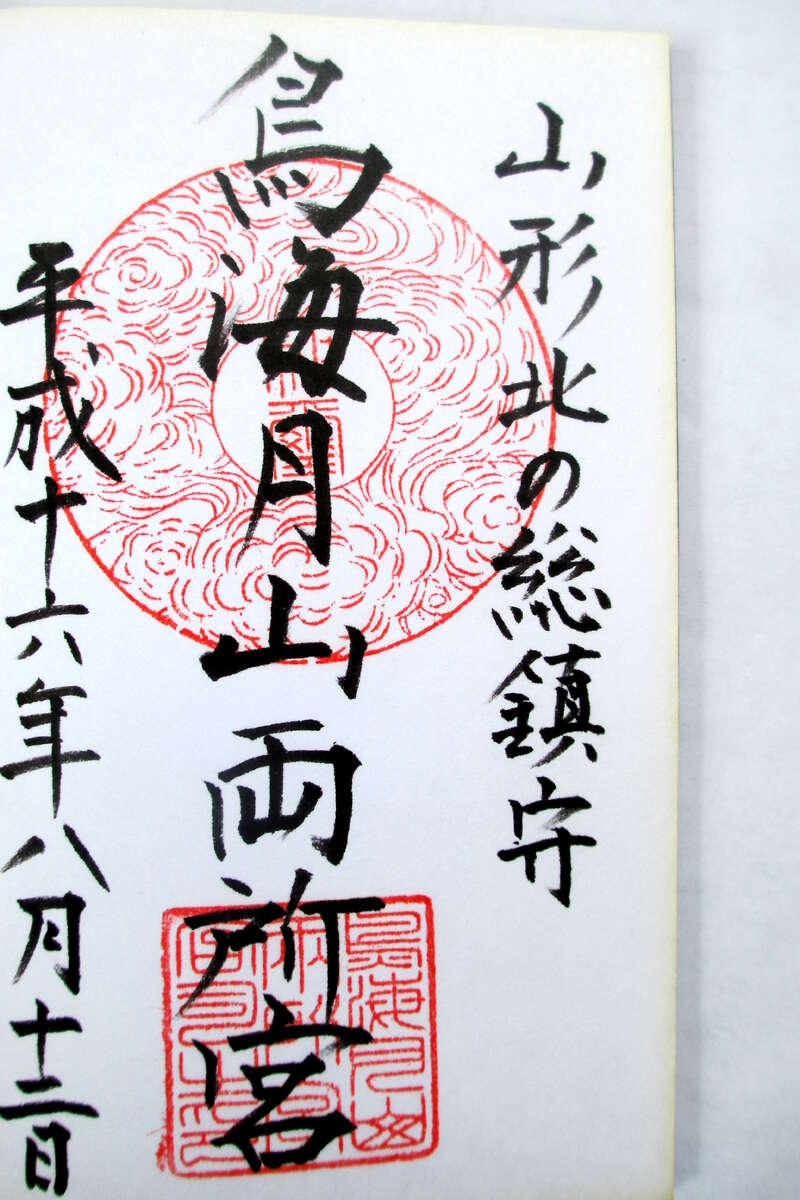 山形北の総鎮守
鳥海月山両所宮
平成十六年八月十二日